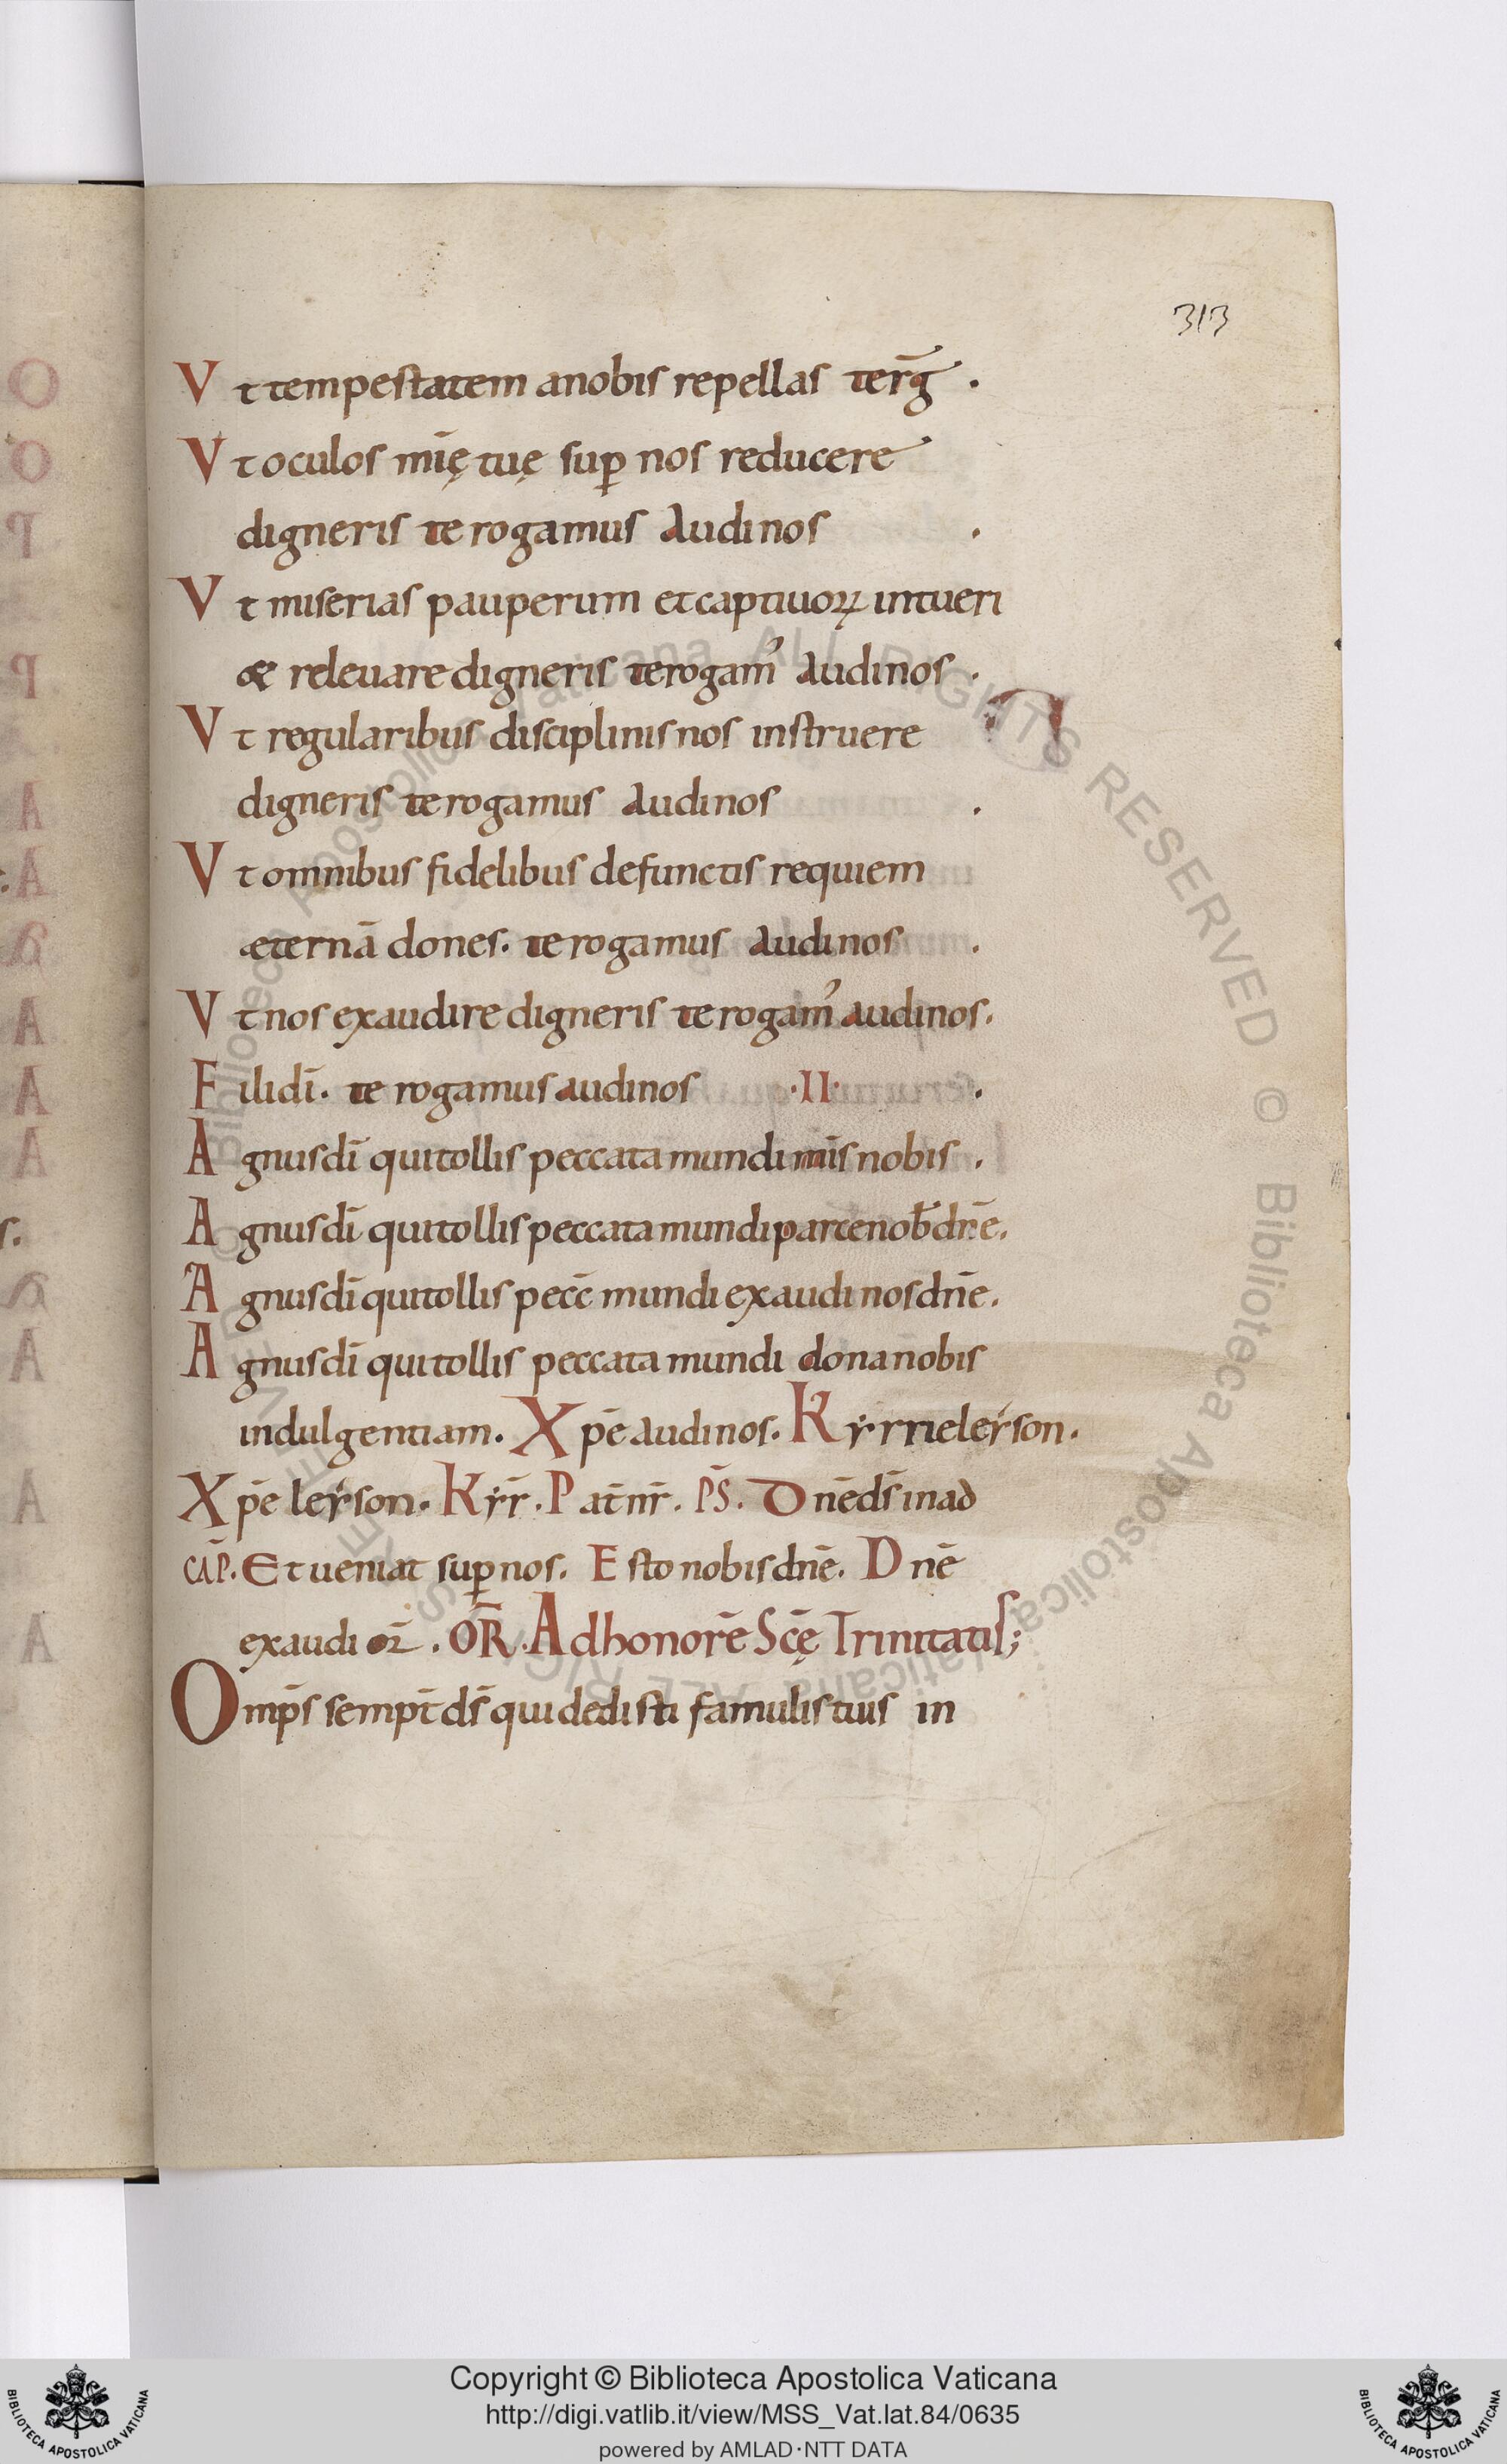 313
Vt tempestatem a nobis repellas terḡ.
Vt oculos mīę tuę suꝑ nos reducere
digneris te rogamus Audi nos .
Vt miserias pauperum et captiuoꝝ intueri
& releuare digneris te rogam᾽ Audi nos.
Vt regularibus disciplinis nos instruere
digneris te rogamus Audi nos .
Vt omnibus fidelibus defunctis requiem
æternā dones. te rogamus Audi nos .
Vt nos exaudire digneris te rogam᾽ audi nos.
Fili dī. te rogamus audi nos ·II· .
Agnus dī qui tollis peccata mundi mis̄ nobis .
Agnus dī qui tollis peccata mundi parce nob̄ dn̄e.
Agnus dī qui tollis pecc̄ mundi exaudi nos dn̄e.
Agnus dī qui tollis peccata mundi dona nobis
indulgentiam. Xp̄e Audi nos. Kyrrieleyson.
Xp̄e leyson. Kyr̄r. Pat̄ nr̄. PS̄. Dn̄e ds̄ in ad
CAP̄. Et ueniat suꝑ nos. Esto nobis dn̄e. Dn̄e
exaudi or̄. OR̄. Ad honorē Scę̄ Trinitatis;
Omp̄s sempt̄ ds̄ qui dedisti famulis tuis in
Copyright © Biblioteca Apostolica Vaticana
http://digi.vatlib.it/view/MSS_Vat.lat.84/0635
powered by AMLAD·NTT DATA
BIBLIOTECA APOSTOLICA VATICANA
BIBLIOTECA APOSTOLICA VATICANA